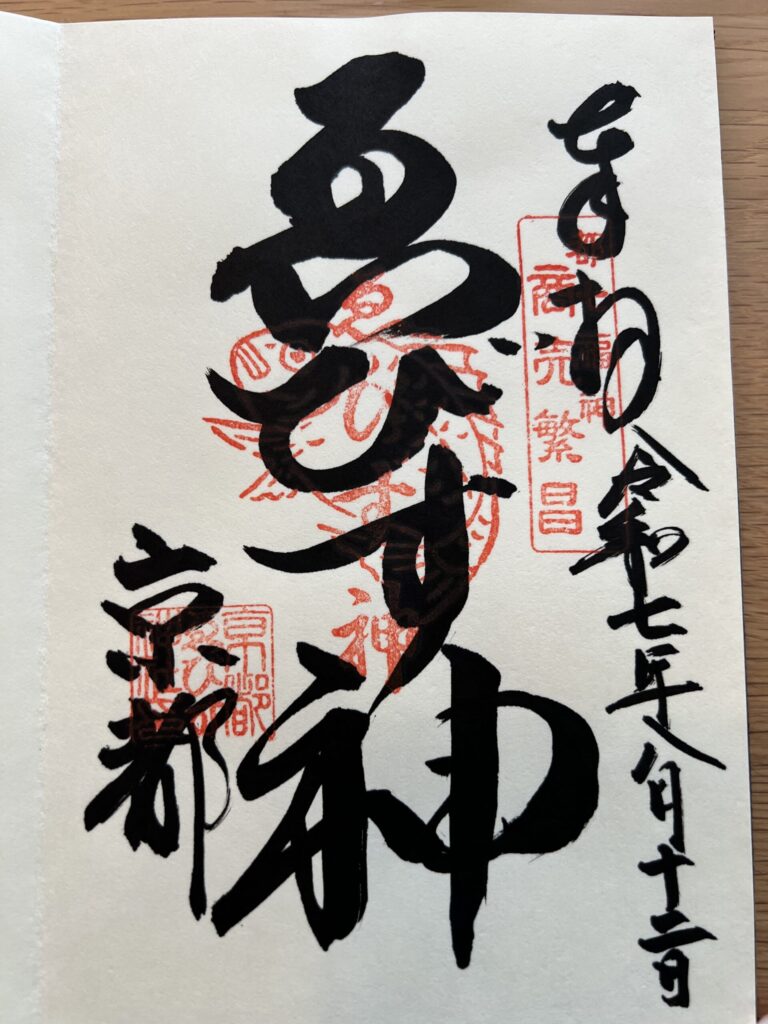 奉拝 令和七年八月十二日
都七福神
商売繁昌
ゑびす神
ゑびす神
京都
京都